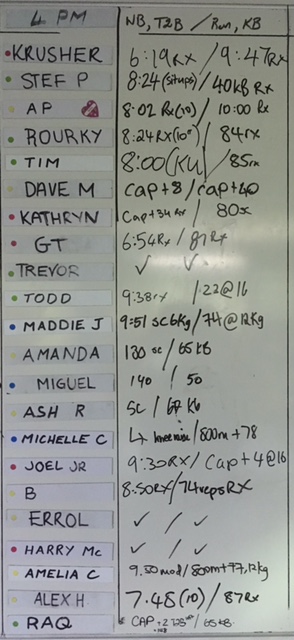 4 PM NB, T2B / Run, KB
KRUSHER 6:19Rx / 9:47Rx
STEF P 8:24 (situps) / 40KB Rx
AP 8:02 Rx(10) / 10:00 Rx
ROURKY 8:24Rx(10") / 84rx
TIM 8:00 / 85rx
DAVE M cap+8 / cap+40
KATHRYN Cap+34 Rx / 80x
GT 6:54Rx / 81Rx
TREVOR ✓ ✓
TODD 9:38rx / 122@16
MADDIE J 9:51 sc6kg / 74@12kg
AMANDA 130 sc / 65 KB
MIGUEL 140 / 50
ASH R SC / 67 KB
MICHELLE C ↳ knee raise / 800m+78
JOEL JR 9:30RX / Cap+4@16
B 8:50RX / 74repsRX
ERROL ✓ / ✓
HARRY Mc ✓ / ✓
AMELIA C 9.50mod / 800m+77,12kg
ALEX H 7.48(10) / 87Rx
RAQ CAP / 65 KB